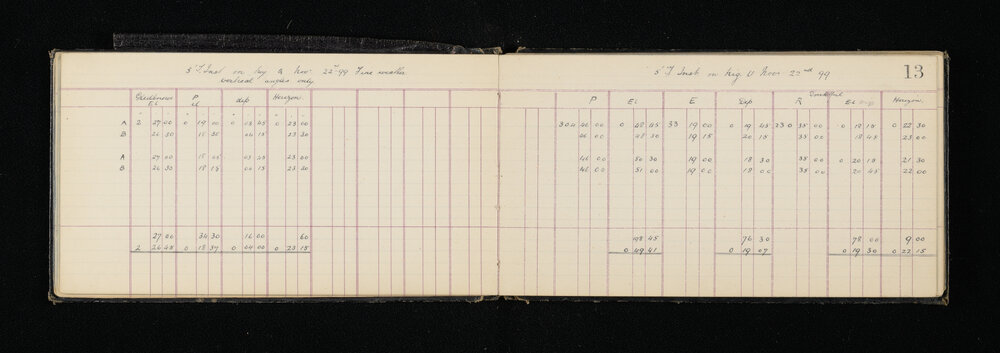 5" T. Inst on Trig Q Nov. 22nd 99 Fine weather
vertical angles only
P El dep Horizon
A 2 27 00 0 19 00 0 03 45 0 23 00
B 26 30 18 30 04 15 23 30
A 27 00 18 05 03 45 23 00
B 26 30 18 15 00 15 23 30
27 00 34 30 16 00 60
2 26 45 0 18 37 0 04 00 0 23 15
13
5" T Inst on Trig U Nov 22nd 99
P El E Dep R El Horizon
304 46 00 0 48 45 33 19 00 0 19 45 330 35 00 0 18 15 0 22 30
46 00 48 30 19 15 20 15 35 00 18 45 23 00
46 00 50 30 19 00 18 30 35 00 0 20 15 21 30
46 00 51 00 19 00 18 00 35 00 20 45 22 00
198 45 76 30 78 00 9 00
0 49 41 0 19 07 0 19 30 0 22 15